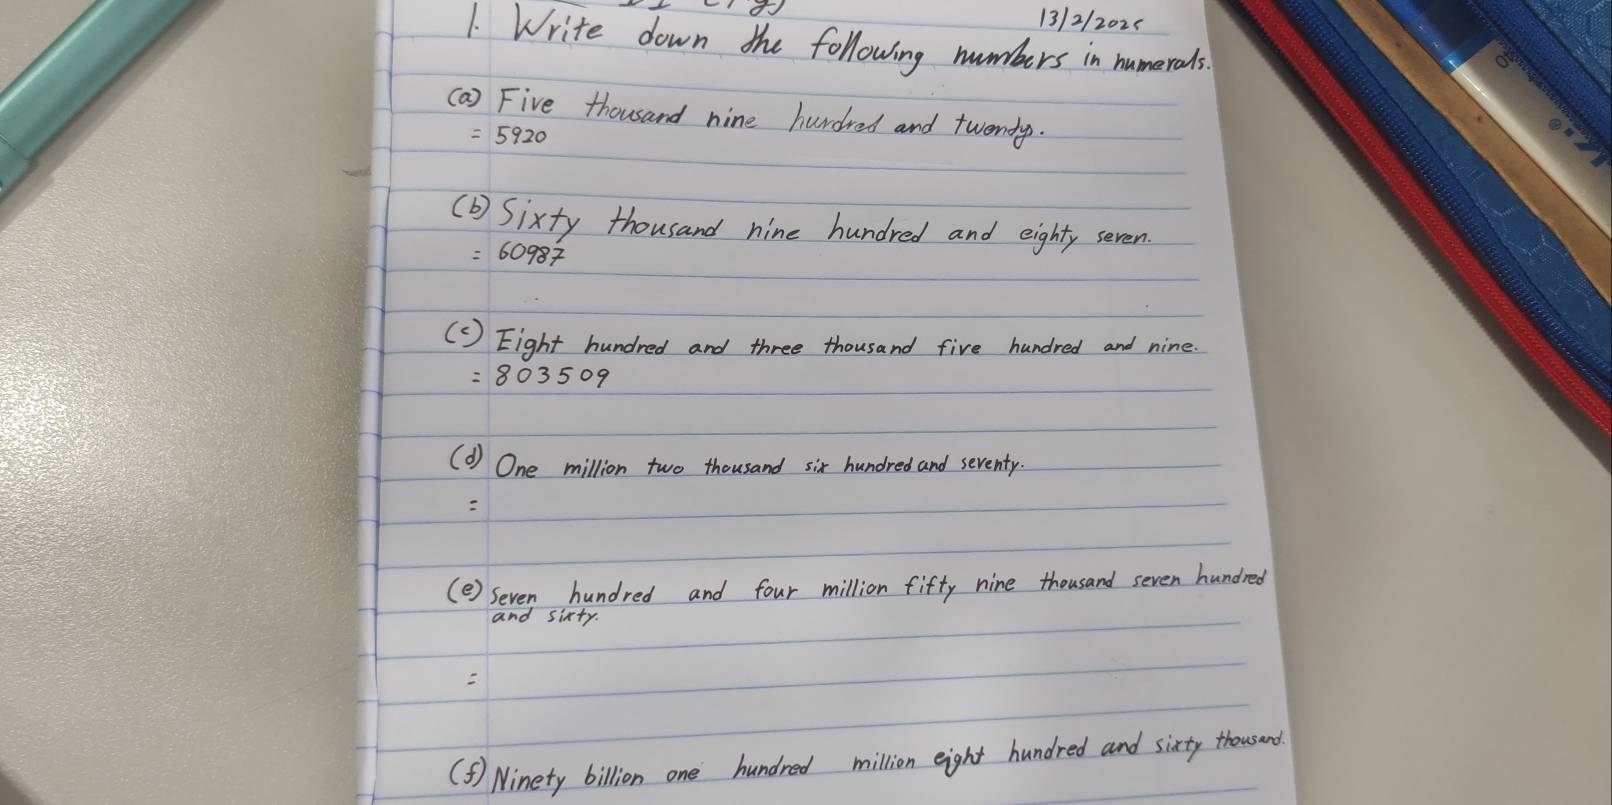 13/2/2025
1. Write down the following numbers in numerals.
(a) Five thousand nine hundred and twenty.
= 5920
(b) Sixty thousand nine hundred and eighty seven.
= 60987
(c) Eight hundred and three thousand five hundred and nine.
= 803509
(d) One million two thousand six hundred and seventy.
=
(e) Seven hundred and four million fifty nine thousand seven hundred
and sixty.
=
(f) Ninety billion one hundred million eight hundred and sixty thousand.